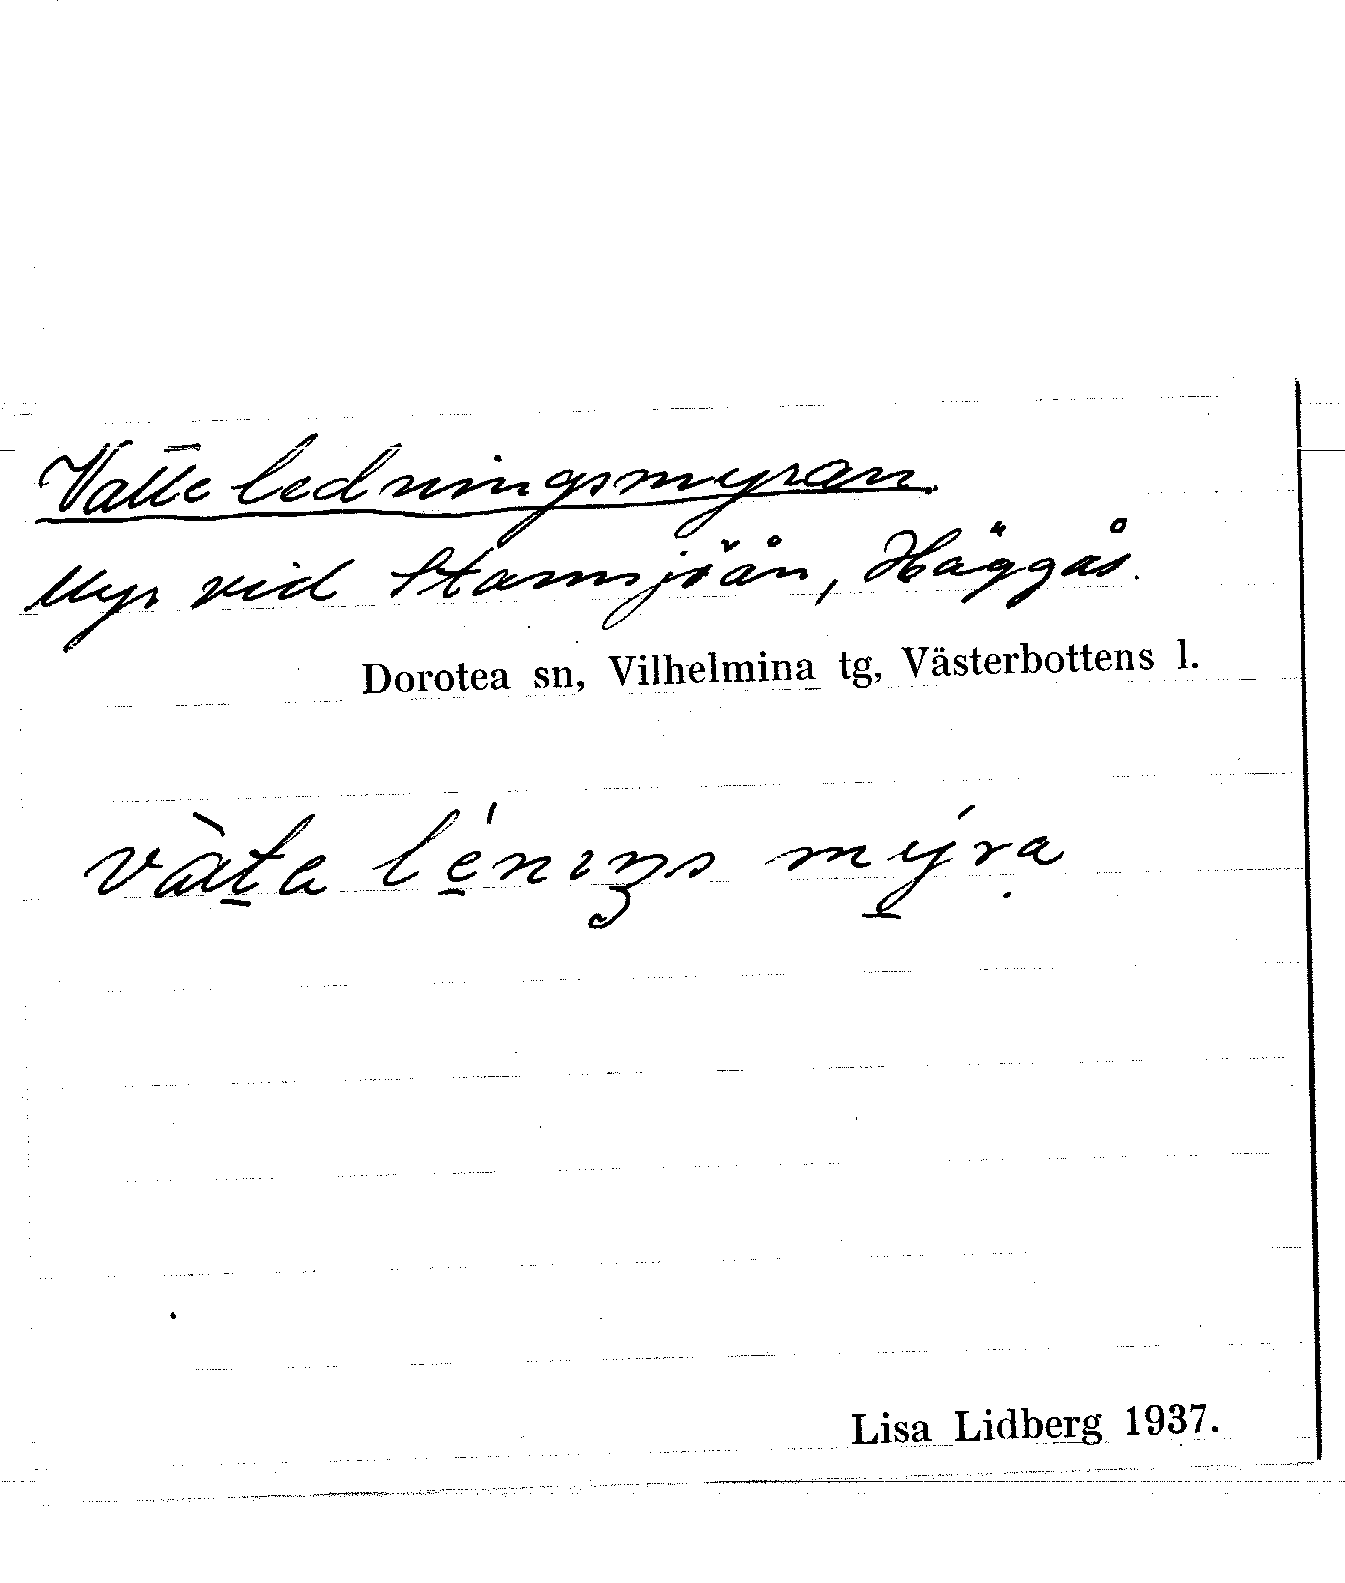 Vatteledningsmyran.
Myr vid Stamsjöån, Häggås.
Dorotea sn, Vilhelmina tg, Västerbottens l.
và̀ta lé̱nɪŋs mýra̤
Lisa Lidberg 1937.